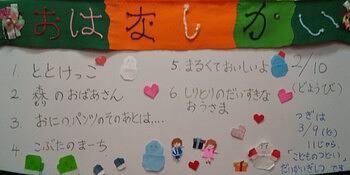 おはなしかい
1. ととけっこ
2. 森のおばあさん
3. おにのパンツのそのあとは....
4 こぶたのまーち
5. まるくておいしいよ
6 しりとりのだいすきな
おうさま
2/10
(どようび)
つぎは
3/9(土)
11じから
「こどものつどい」
だいかいぎしつ です